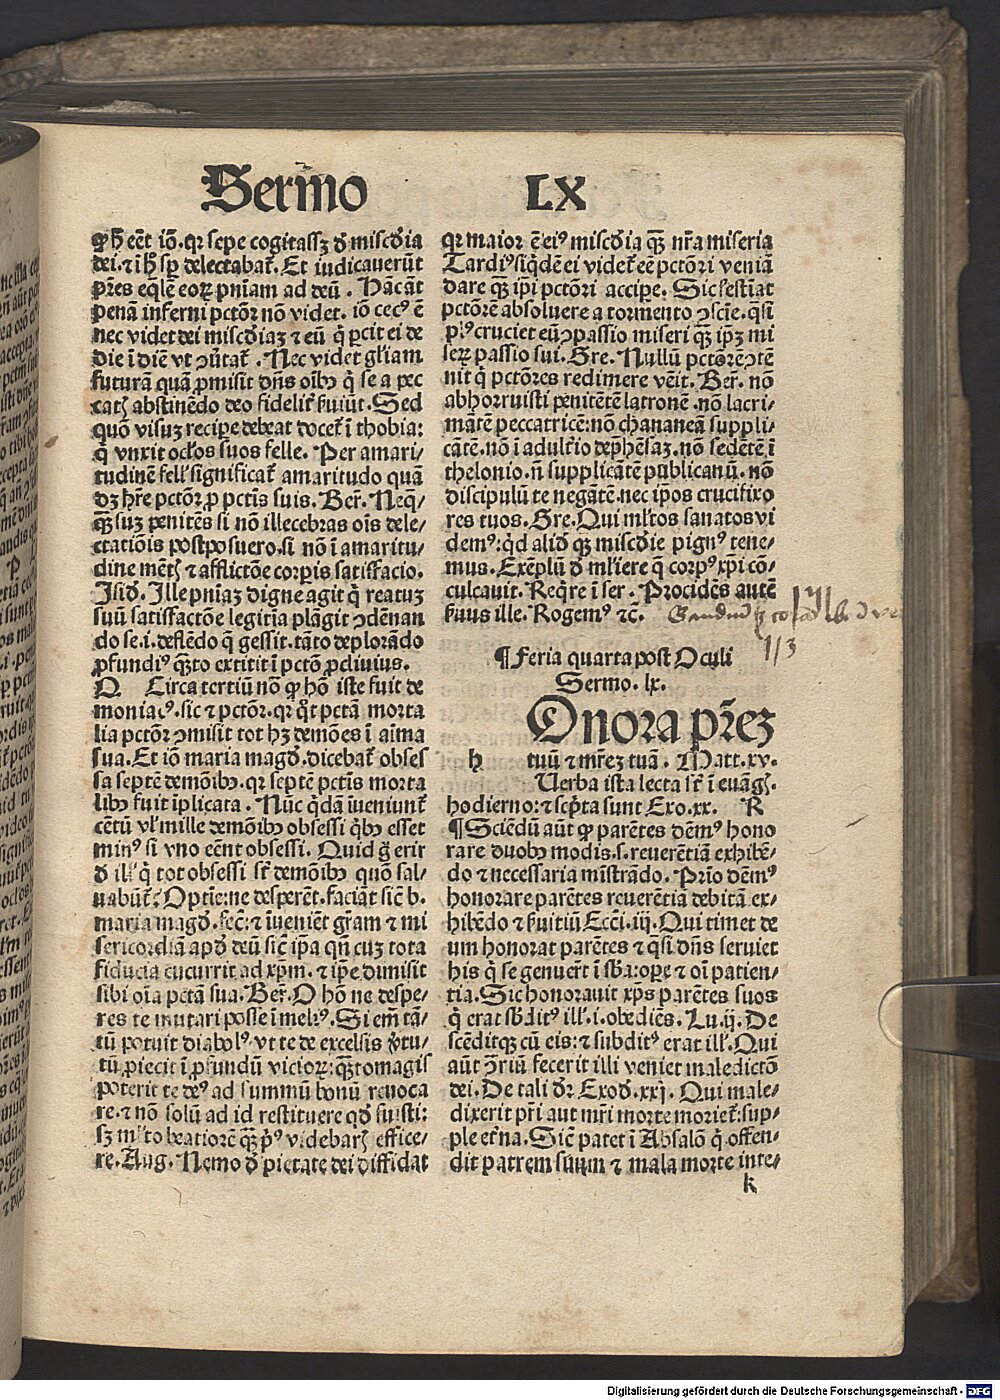 Sermo LX
ꝙ h̄ eēt iō. qꝛ sepe cogitassꝫ d̄ misc̄dia
dei. ⁊ ī h̄ sꝑ delectabat᷑. Et iudicauerūt
p̄res eqlē eoꝝ pn̄iam ad deū. Vacāt
penā inferni pctōꝛ nō videt. iō cecꝰ ē
nec videt dei misc̄diaꝫ ⁊ eū q̇ ꝑcit ei de
die ī diē vt ↄūtat᷑. Nec videt gl̄iam
futurā quā ꝓmisit dn̄s oībꝫ q̇ se a pec
catꝭ abstinēdo deo fidelit᷑ ẜuiūt. Sed
quō visuꝫ recipe debeat docet᷑ ī thobia:
q̇ vnxit oc̄los suos felle. Per amari-
tudinē fell̄ significat᷑ amaritudo quā
dꝫ hr̄e pctōꝛ ꝓ pctīs suis. Ber̄. Neq̄-
q̄ꝫ suꝫ penitēs si nō illecebras oīs dele-
ctatiōis postposuero. si nō ī amaritu-
dine mētꝭ ⁊ afflictōe corꝑis satisfacio.
Isid̄. Ille pn̄iaꝫ digne agit q̇ reatuꝫ
suū satisfactōe legitia plāgit ↄdēnan
do se. i. deflēdo q̄ gessit. tāto deplorādo
ꝓfundiꝰ q̄ꝫto extitit ī pctō ꝓcliuius.
Q Circa tertiū nō ꝙ hō iste fuit de
moniacꝰ. sic ⁊ pctōꝛ. qꝛ q̇t pctā morta
lia pctōꝛ ↄmisit tot hꝫ demōes ī aīma
sua. Et iō maria magd̄. dicebat᷑ obses
sa septē demōibꝫ. qꝛ septē pctīs morta
libꝫ fuit īplicata. Nūc q̇dā īueniunt᷑
cētū vl̓ mille demōibꝫ obsessi q̇bꝫ esset
minꝰ si vno eēnt obsessi. Quid g̊ erit
d̄ ill̓ q̇ tot obsessi sr̄ demōibꝫ quō sal-
uabūt᷑? Optīe: ne desperēt. faciāt sic̄ b.
maria magd̄. fec̄: ⁊ īueniēt gr̄am ⁊ mi
sericordiā apd̄ deū sic̄ ip̄a qn̄ cuꝫ tota
fiducia cucurrit ad xp̄m. ⁊ ip̄e dimisit
sibi oīa pctā sua. Ber̄. O hō ne despe-
res te mutari posse ī melīꝰ. Si em̄ tā-
tū potuit diabolꝰ vt te de excelsis v̓tu-
tū ꝓiecit ī ꝓfundū vicioꝝ: q̄ꝫtomagis
poterit te deꝰ ad summū bonū reuoca
re. ⁊ nō solū ad id restituere qd̄ fuisti:
sꝫ ml̓to beatiorē q̄ꝫ pͥꝰ videbarꝭ effice-
re. Aug. Nemo d̄ pietate dei diffidat
qꝛ maior ē eiꝰ misc̄dia q̄ꝫ nr̄a miseria
Tardiꝰ siq̇dē ei videt᷑ eē pctōri veniā
dare q̄ꝫ ip̄i pctōri accipe. Sic festīat
pctōrē absoluere a tormento ↄscīe. q̄si
plꝰ cruciet eū ↄpassio miseri q̄ꝫ ip̄ꝫ mi
seꝝ passio sui. Gre. Nullū pctōrē ↄtē
nit q̇ pctōres redimere vēit. Ber̄. nō
abhorruisti penitētē latronē. nō lacri-
mātē peccatricē: nō chananeā suppli-
cātē. nō ī adult̓io dep̄hēsaꝫ. nō sedētē ī
thelonio. n̄ supplicātē publicanū. nō
discipulū te negātē. nec ip̄os crucifixo
res tuos. Gre. Qui ml̓tos sanatos vi
demꝰ: qd̄ alid̓ q̄ꝫ misc̄die pignꝰ tene-
mus. Exēplū d̄ ml̓iere q̄ corpꝰ xp̄i cō-
culcauit. Req̇re ī ser. Procidēs autē
ẜuus ille. Rogemꝰ ⁊c̄.
¶Feria quarta post Oculi
Sermo. lx.
h Onora pr̄eꝫ
tuū ⁊ mr̄eꝫ tuā. Matt. xv.
Verba ista lecta sr̄ ī euāgꝭ.
hodierno: ⁊ sc̄pta sunt Exo. xx. R
¶Sciēdū aūt ꝙ parētes dēmꝰ hono
rare duobꝫ modis. s. reuerētiā exhibē-
do ⁊ necessaria mīstrādo. Prīo dēmꝰ
honorare parētes reuerētiā debitā ex-
hibēdo ⁊ ẜuitiū Ecci. iij. Qui timet de
um honorat parētes ⁊ q̄si dn̄s seruiet
his q̇ se genuer̄t ī v̓bo: oꝑe ⁊ oī patien-
tia. Sic honorauit xp̄s parētes suos
q̇ erat sb̓ditꝰ ill̓. i. obediēs. Lu. ij. De
scēditqꝫ cū eis: ⁊ subditꝰ erat ill̓. Qui
aūt ↄ̓riū fecerit illi veniet maledictō
dei. De tali dr̄ Exod̄. xxj. Qui male-
dixerit pr̄i aut mr̄i morte moriet᷑: sup-
ple et̓na. Sic̄ patet ī Absalō q̇ offen-
dit patrem suum ⁊ mala morte inte-
k
Digitalisierung gefördert durch die Deutsche Forschungsgemeinschaft - DFG